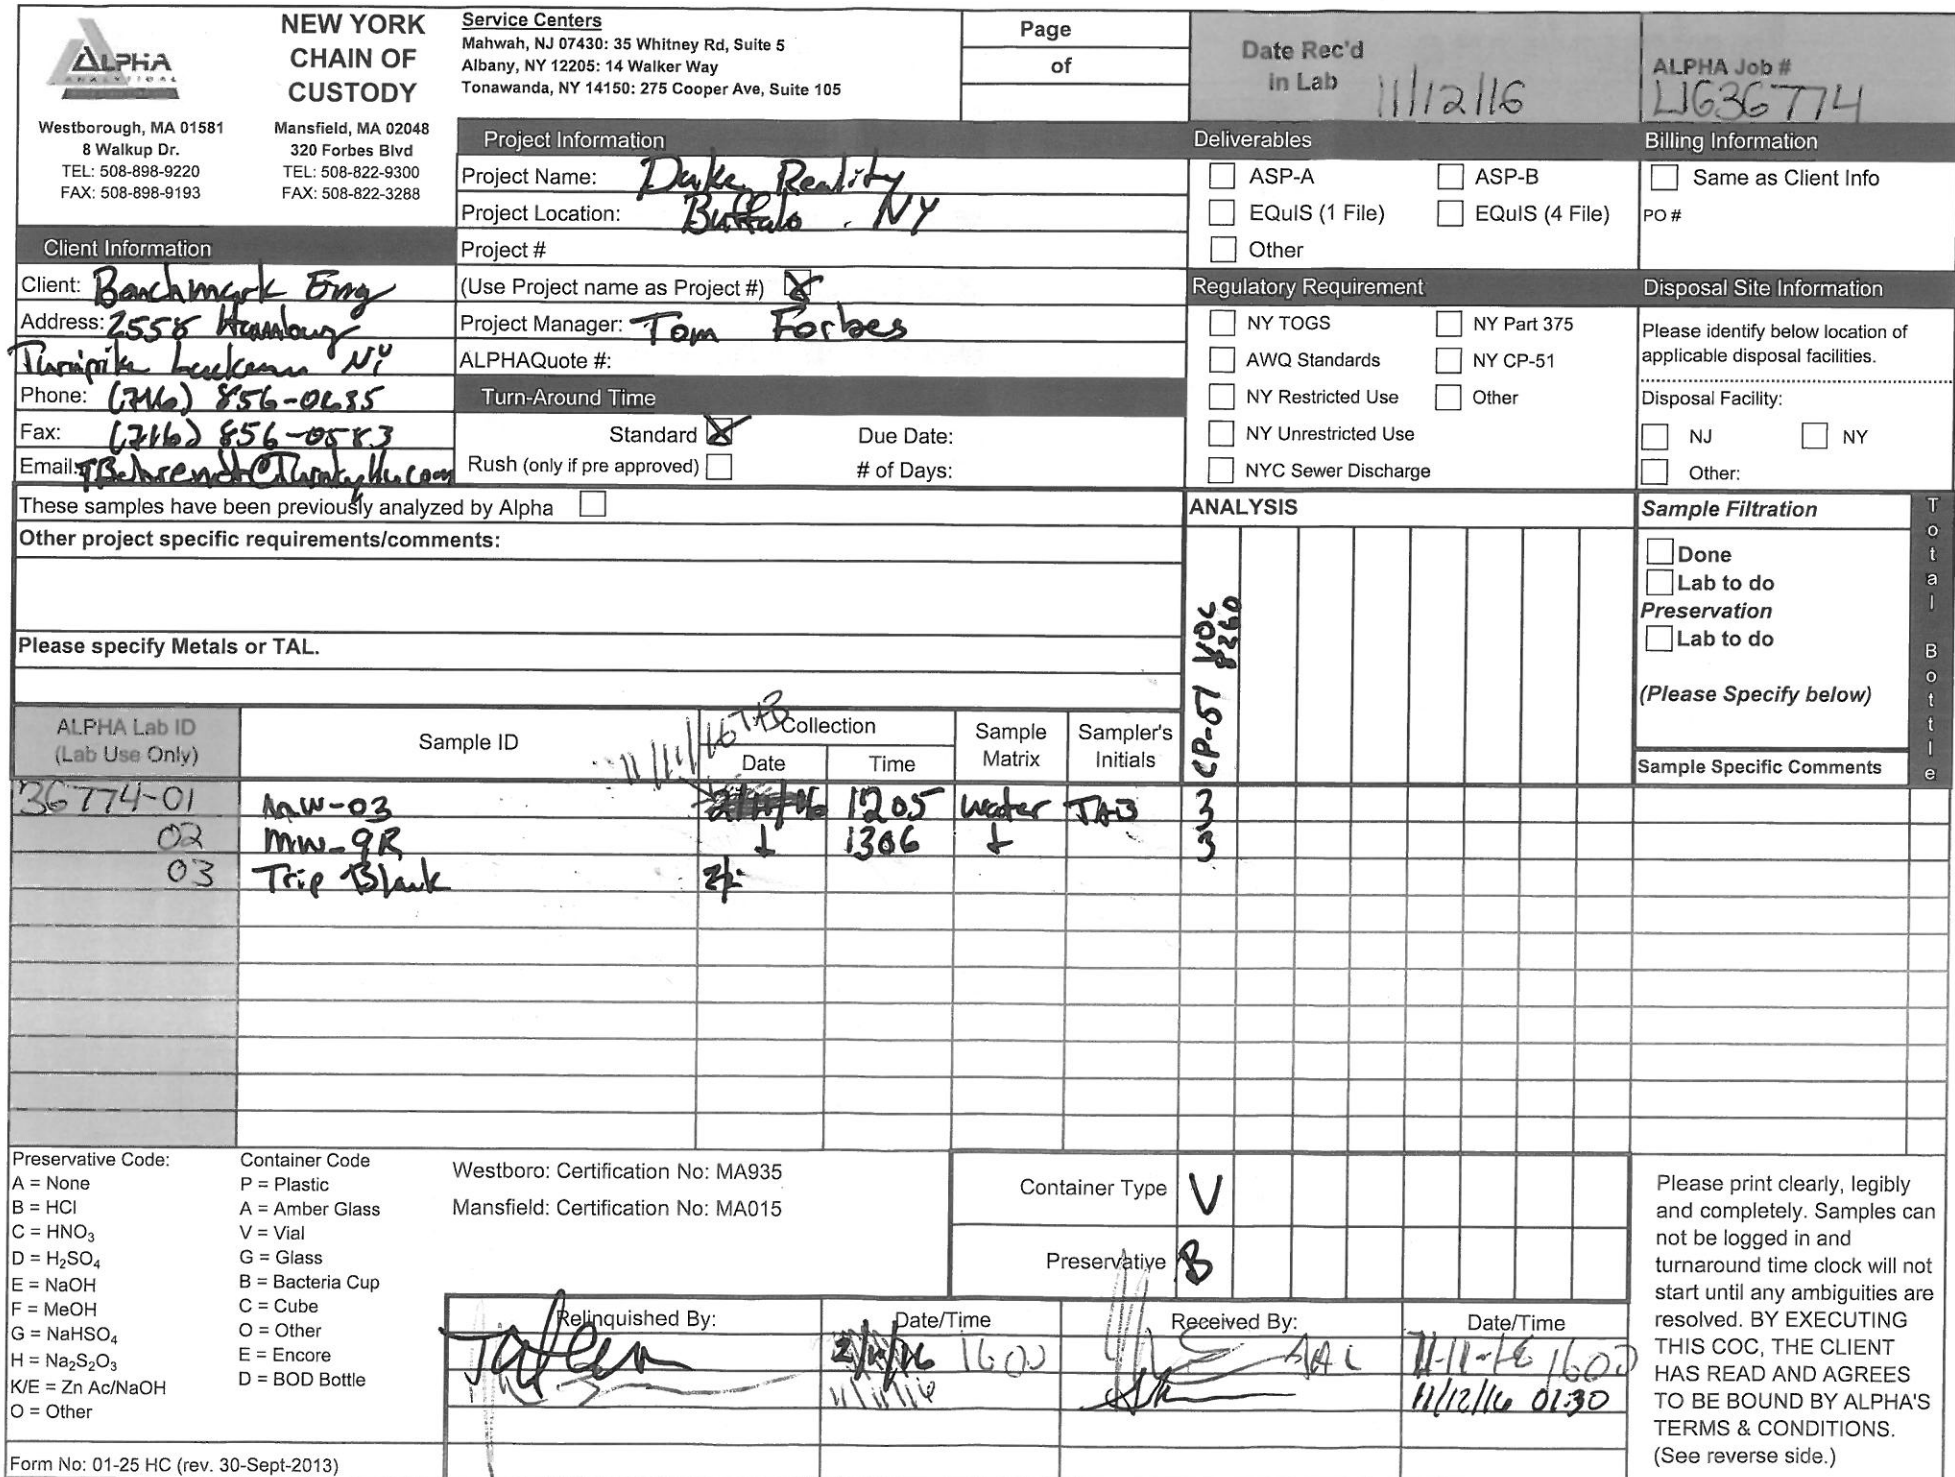 ALPHA
ANALYTICAL
NEW YORK
CHAIN OF
CUSTODY
Westborough, MA 01581
8 Walkup Dr.
TEL: 508-898-9220
FAX: 508-898-9193
Mansfield, MA 02048
320 Forbes Blvd
TEL: 508-822-9300
FAX: 508-822-3288
Service Centers
Mahwah, NJ 07430: 35 Whitney Rd, Suite 5
Albany, NY 12205: 14 Walker Way
Tonawanda, NY 14150: 275 Cooper Ave, Suite 105
Page
of
Date Rec'd
in Lab 11/12/16
ALPHA Job #
L1636774
Project Information
Project Name: Reality
Project Location: Buffalo, NY
Project #
(Use Project name as Project #) X
Project Manager: Tom Forbes
ALPHAQuote #:
Turn-Around Time
Standard X Due Date:
Rush (only if pre approved) # of Days:
Client Information
Client: Benchmark Eng
Address: 2558 Hamburg
Turnpike NY
Phone: (716) 856-
Fax: (716) 856-0583
Email:
Deliverables
ASP-A ASP-B
EQuIS (1 File) EQuIS (4 File)
Other
Billing Information
Same as Client Info
PO #
Regulatory Requirement
NY TOGS NY Part 375
AWQ Standards NY CP-51
NY Restricted Use Other
NY Unrestricted Use
NYC Sewer Discharge
Disposal Site Information
Please identify below location of
applicable disposal facilities.
Disposal Facility:
NJ NY
Other:
These samples have been previously analyzed by Alpha
Other project specific requirements/comments:
Please specify Metals or TAL.
ANALYSIS
CP-51 VOC
8260
Sample Filtration
Done
Lab to do
Preservation
Lab to do
(Please Specify below)
Sample Specific Comments
Total Bottle
ALPHA Lab ID
(Lab Use Only)
Sample ID
Collection
Date Time
Sample
Matrix
Sampler's
Initials
11/11/16 TAB
36774-01 MW-03 1205 Water TAB 3
02 MW-9R 1306 3
03 Trip Blank
Preservative Code:
A = None
B = HCl
C = HNO₃
D = H₂SO₄
E = NaOH
F = MeOH
G = NaHSO₄
H = Na₂S₂O₃
K/E = Zn Ac/NaOH
O = Other
Container Code
P = Plastic
A = Amber Glass
V = Vial
G = Glass
B = Bacteria Cup
C = Cube
O = Other
E = Encore
D = BOD Bottle
Westboro: Certification No: MA935
Mansfield: Certification No: MA015
Container Type V
Preservative B
Relinquished By: Date/Time Received By: Date/Time
1600 AAL 11-11-16 1600
11/11/16 11/12/16 01:30
Please print clearly, legibly
and completely. Samples can
not be logged in and
turnaround time clock will not
start until any ambiguities are
resolved. BY EXECUTING
THIS COC, THE CLIENT
HAS READ AND AGREES
TO BE BOUND BY ALPHA'S
TERMS & CONDITIONS.
(See reverse side.)
Form No: 01-25 HC (rev. 30-Sept-2013)